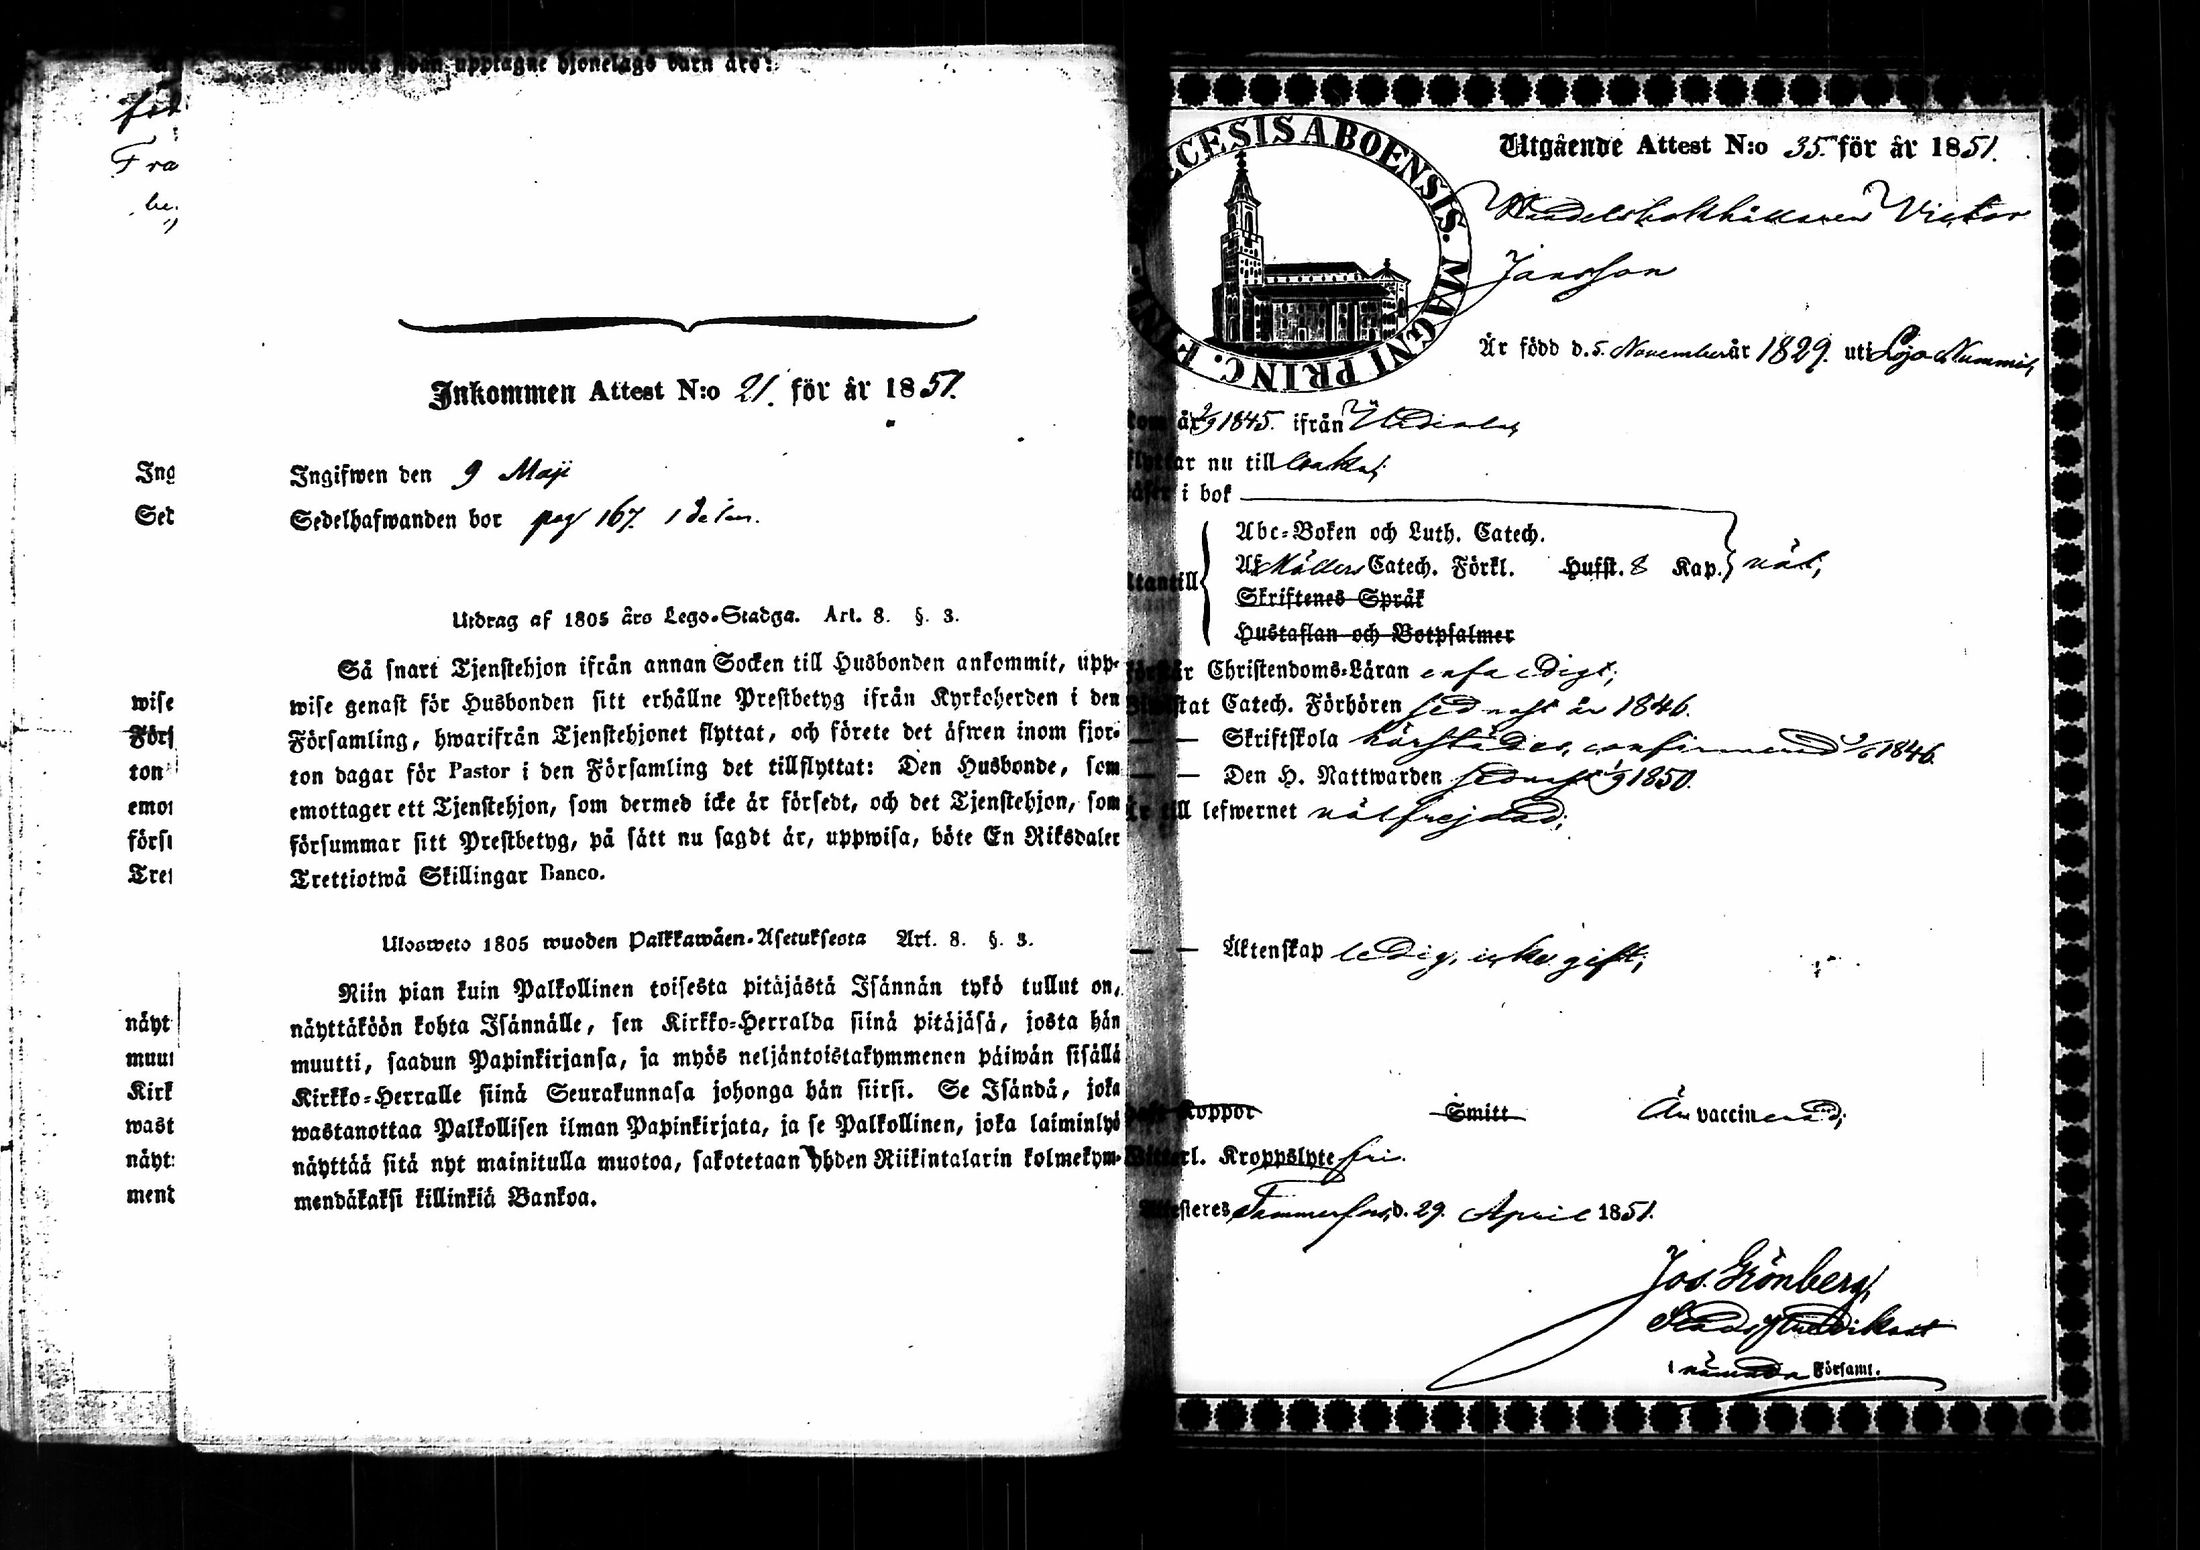 upptagne hjonelags barn äro:
Fra
be.
Inkommen Attest N:o 21. för år 1851.
Ing
Ingifwen den 9 Maji
Sed
Sedelhafwanden bor pag 167. 1 delen.
Utdrag af 1805 års Lego-Stadga. Art. 8. §. 3.
Så snart Tjenstehjon ifrån annan Socken till Husbonden ankommit, upp-
wise genast för Husbonden sitt erhållne Prestbetyg ifrån Kyrkoherden i den
Församling, hwarifrån Tjenstehjonet flyttat, och förete det äfwen inom fjor-
ton dagar för Pastor i den Församling det tillflyttat: Den Husbonde, som
emottager ett Tjenstehjon, som dermed icke är försedt, och det Tjenstehjon, som
försummar sitt Prestbetyg, på sätt nu sagdt är, uppwisa, böte En Riksdaler
Trettiotwå Skillingar Banco.
wise
Förs
ton
emot
förs
Tret
Ulosweto 1805 wuoden Palkkawäen-Asetuksesta Art. 8. §. 3.
Niin pian kuin Palkollinen toisesta pitäjästä Isännän tykö tullut on,
näyttäköön kohta Isännälle, sen Kirkko-Herralda siinä pitäjäsä, josta hän
muutti, saadun Papinkirjansa, ja myös neljäntoistakymmenen päiwän sisällä
Kirkko-Herralle siinä Seurakunnasa johonga hän siirsi. Se Isändä, joka
wastanottaa Palkollisen ilman Papinkirjata, ja se Palkollinen, joka laiminlyö
näyttää sitä nyt mainitulla muotoa, sakotetaan yhden Riikintalarin kolmekym-
mendäkaksi killinkiä Bankoa.
näyt
muut
Kirk
wast
näyt
mend
CESIS ABOENSIS. MAGNI PRINC. FINL.
Utgående Attest N:o 35. för år 1851.
Handelsbokhållaren Victor
Jansson
Är född d. 5. November år 1829. uti Lojo Nummis,
kom år 2/9 1845. ifrån
flyttar nu till
läser i bok
Abc-Boken och Luth. Catech.
Af Möllers Catech. Förkl. Hufst. 8 Kap. väl;
utantill
Skriftenes Språk
Hustaflan och Botpsalmer
förstår Christendoms-Läran enfaldigt;
Bewistat Catech. Förhören sednast år 1846.
— — Skriftskola härstädes, confirmerad 2/6 1846.
— — Den H. Nattwarden sednast 1/9 1850.
Är till lefwernet välfrejdad;
— — Äktenskap ledig, icke gift;
haft Koppor Smitt Är vaccinerad;
Witterl. Kroppslyte fri.
Attesteres, Tammerfors, d. 29. April 1851.
Jos. Grönberg,
Stadspredikant
i nämnda Församl.